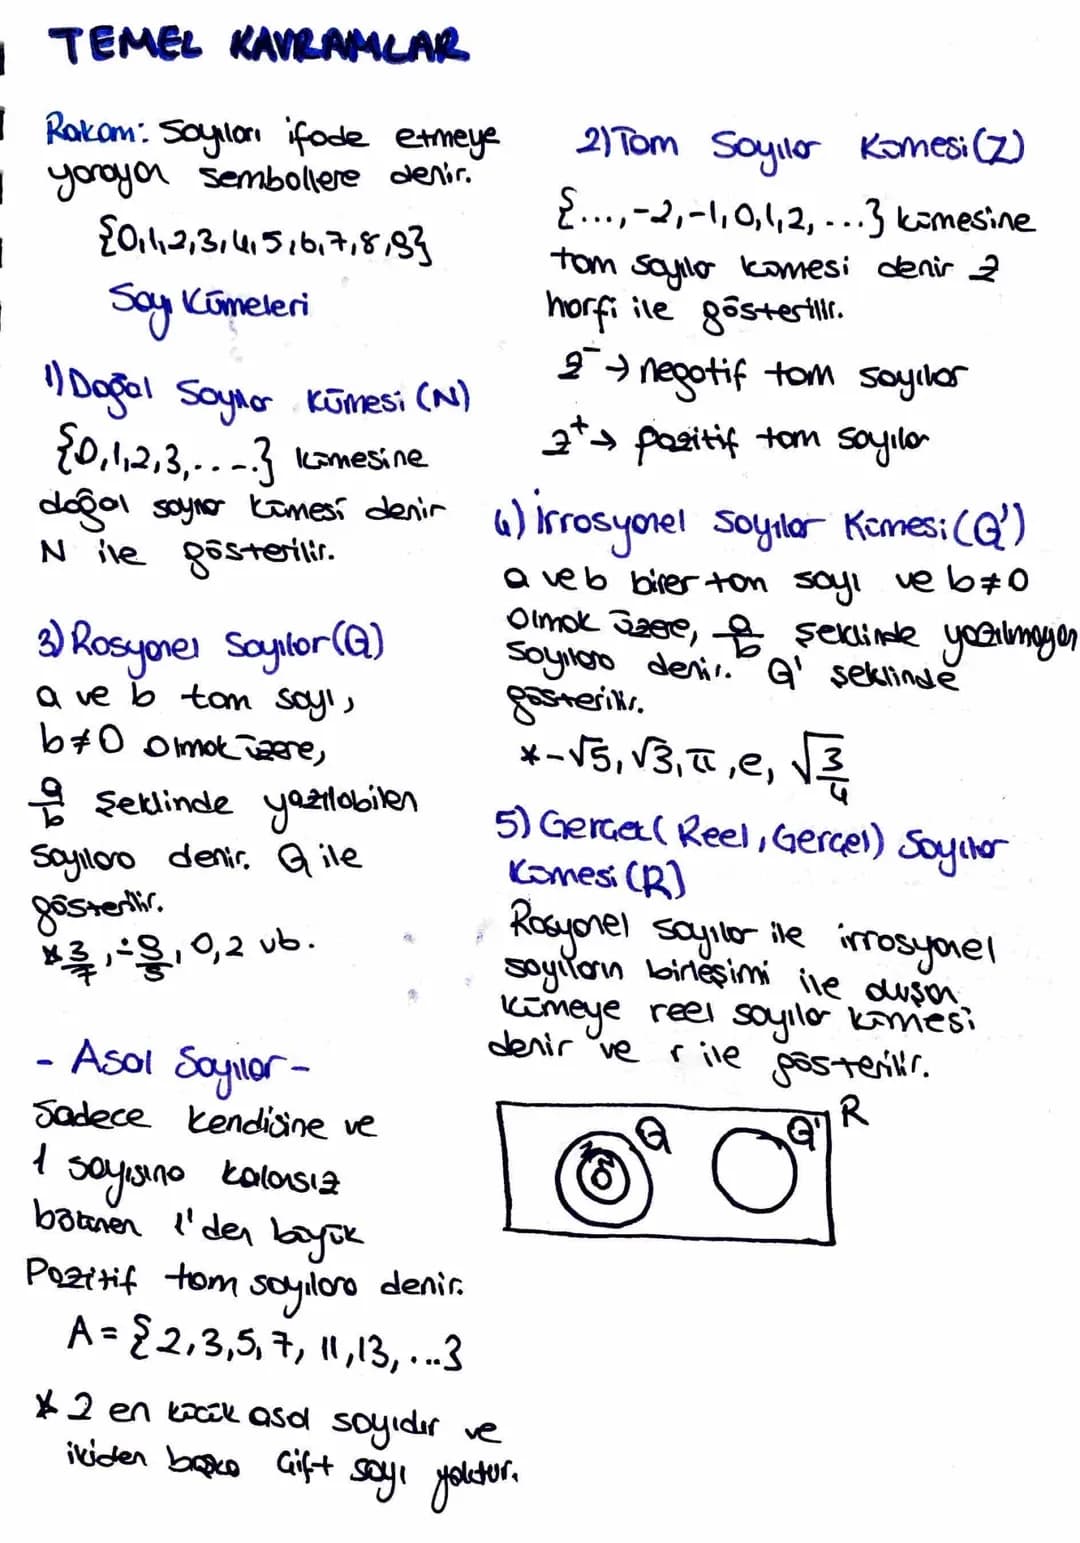 TEMEL KAVRAMLAR
Rakam: Sayıları ifade etmeye
yarayan sembollere denir.
{0,1,2,3,4,5,6,7,8,9}
Sayı Kümeleri
1) Doğal Sayılar Kümesi (N)
{0,1,2,3,....} kümesine
doğal sayılar kümesi denir
N ile gösterilir.
3) Rasyonel Sayılar (Q)
a ve b tam sayı,
b≠0 olmak üzere,
a/b şeklinde yazılabilen
sayılara denir. Q ile
gösterilir.
* 3/7, -9/5, 0,2 vb.
- Asal Sayılar -
Sadece kendisine ve
1 sayısına kalansız
bölünen 1'den büyük
Pozitif tam sayılara denir.
A = {2,3,5,7,11,13,...}
* 2 en küçük asal sayıdır ve
ikiden başka çift sayı yoktur.
2) Tam Sayılar Kümesi (Z)
{...,-2,-1,0,1,2,...} kümesine
tam sayılar kümesi denir Z
harfi ile gösterilir.
Z⁻ → negatif tam sayılar
Z⁺ → pozitif tam sayılar
4) İrrasyonel Sayılar Kümesi (Q')
a ve b birer tam sayı ve b≠0
Olmak üzere, a/b şeklinde yazılmayan
sayılara denir. Q' şeklinde
gösterilir.
* -√5, √3, π, e, √3/4
5) Gerçek (Reel, Gerçel) Sayılar
Kümesi (R)
Rasyonel sayılar ile irrasyonel
sayıların birleşimi ile oluşan
kümeye reel sayılar kümesi
denir ve r ile gösterilir.
R
Q Q'
Z
N